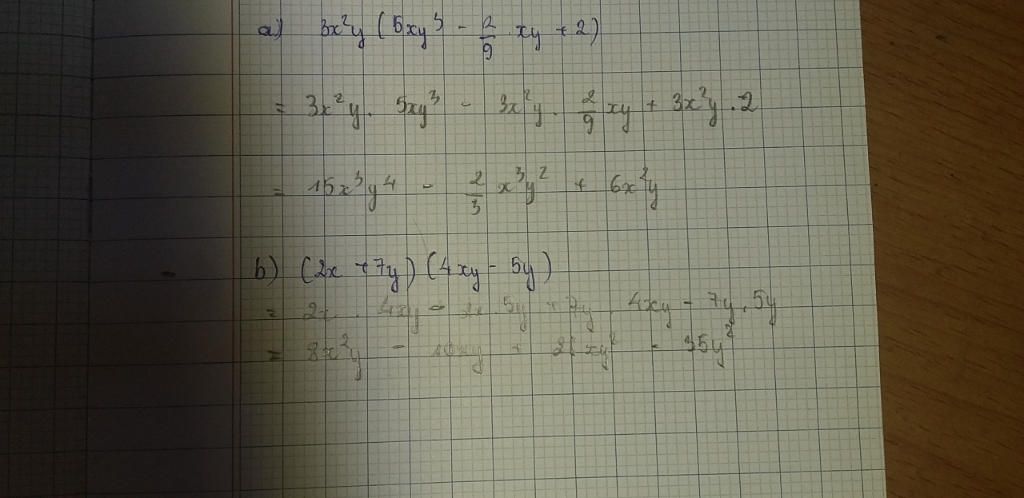 a) 3x²y (5xy³ - 2/9 xy + 2)
= 3x²y . 5xy³ - 3x²y . 2/9 xy + 3x²y . 2
= 15x³y⁴ - 2/3 x³y² + 6x²y
b) (2x + 7y) (4xy - 5y)
= 2x . 4xy - 2x . 5y + 7y . 4xy - 7y . 5y
= 8x²y - 10xy + 28xy² - 35y²